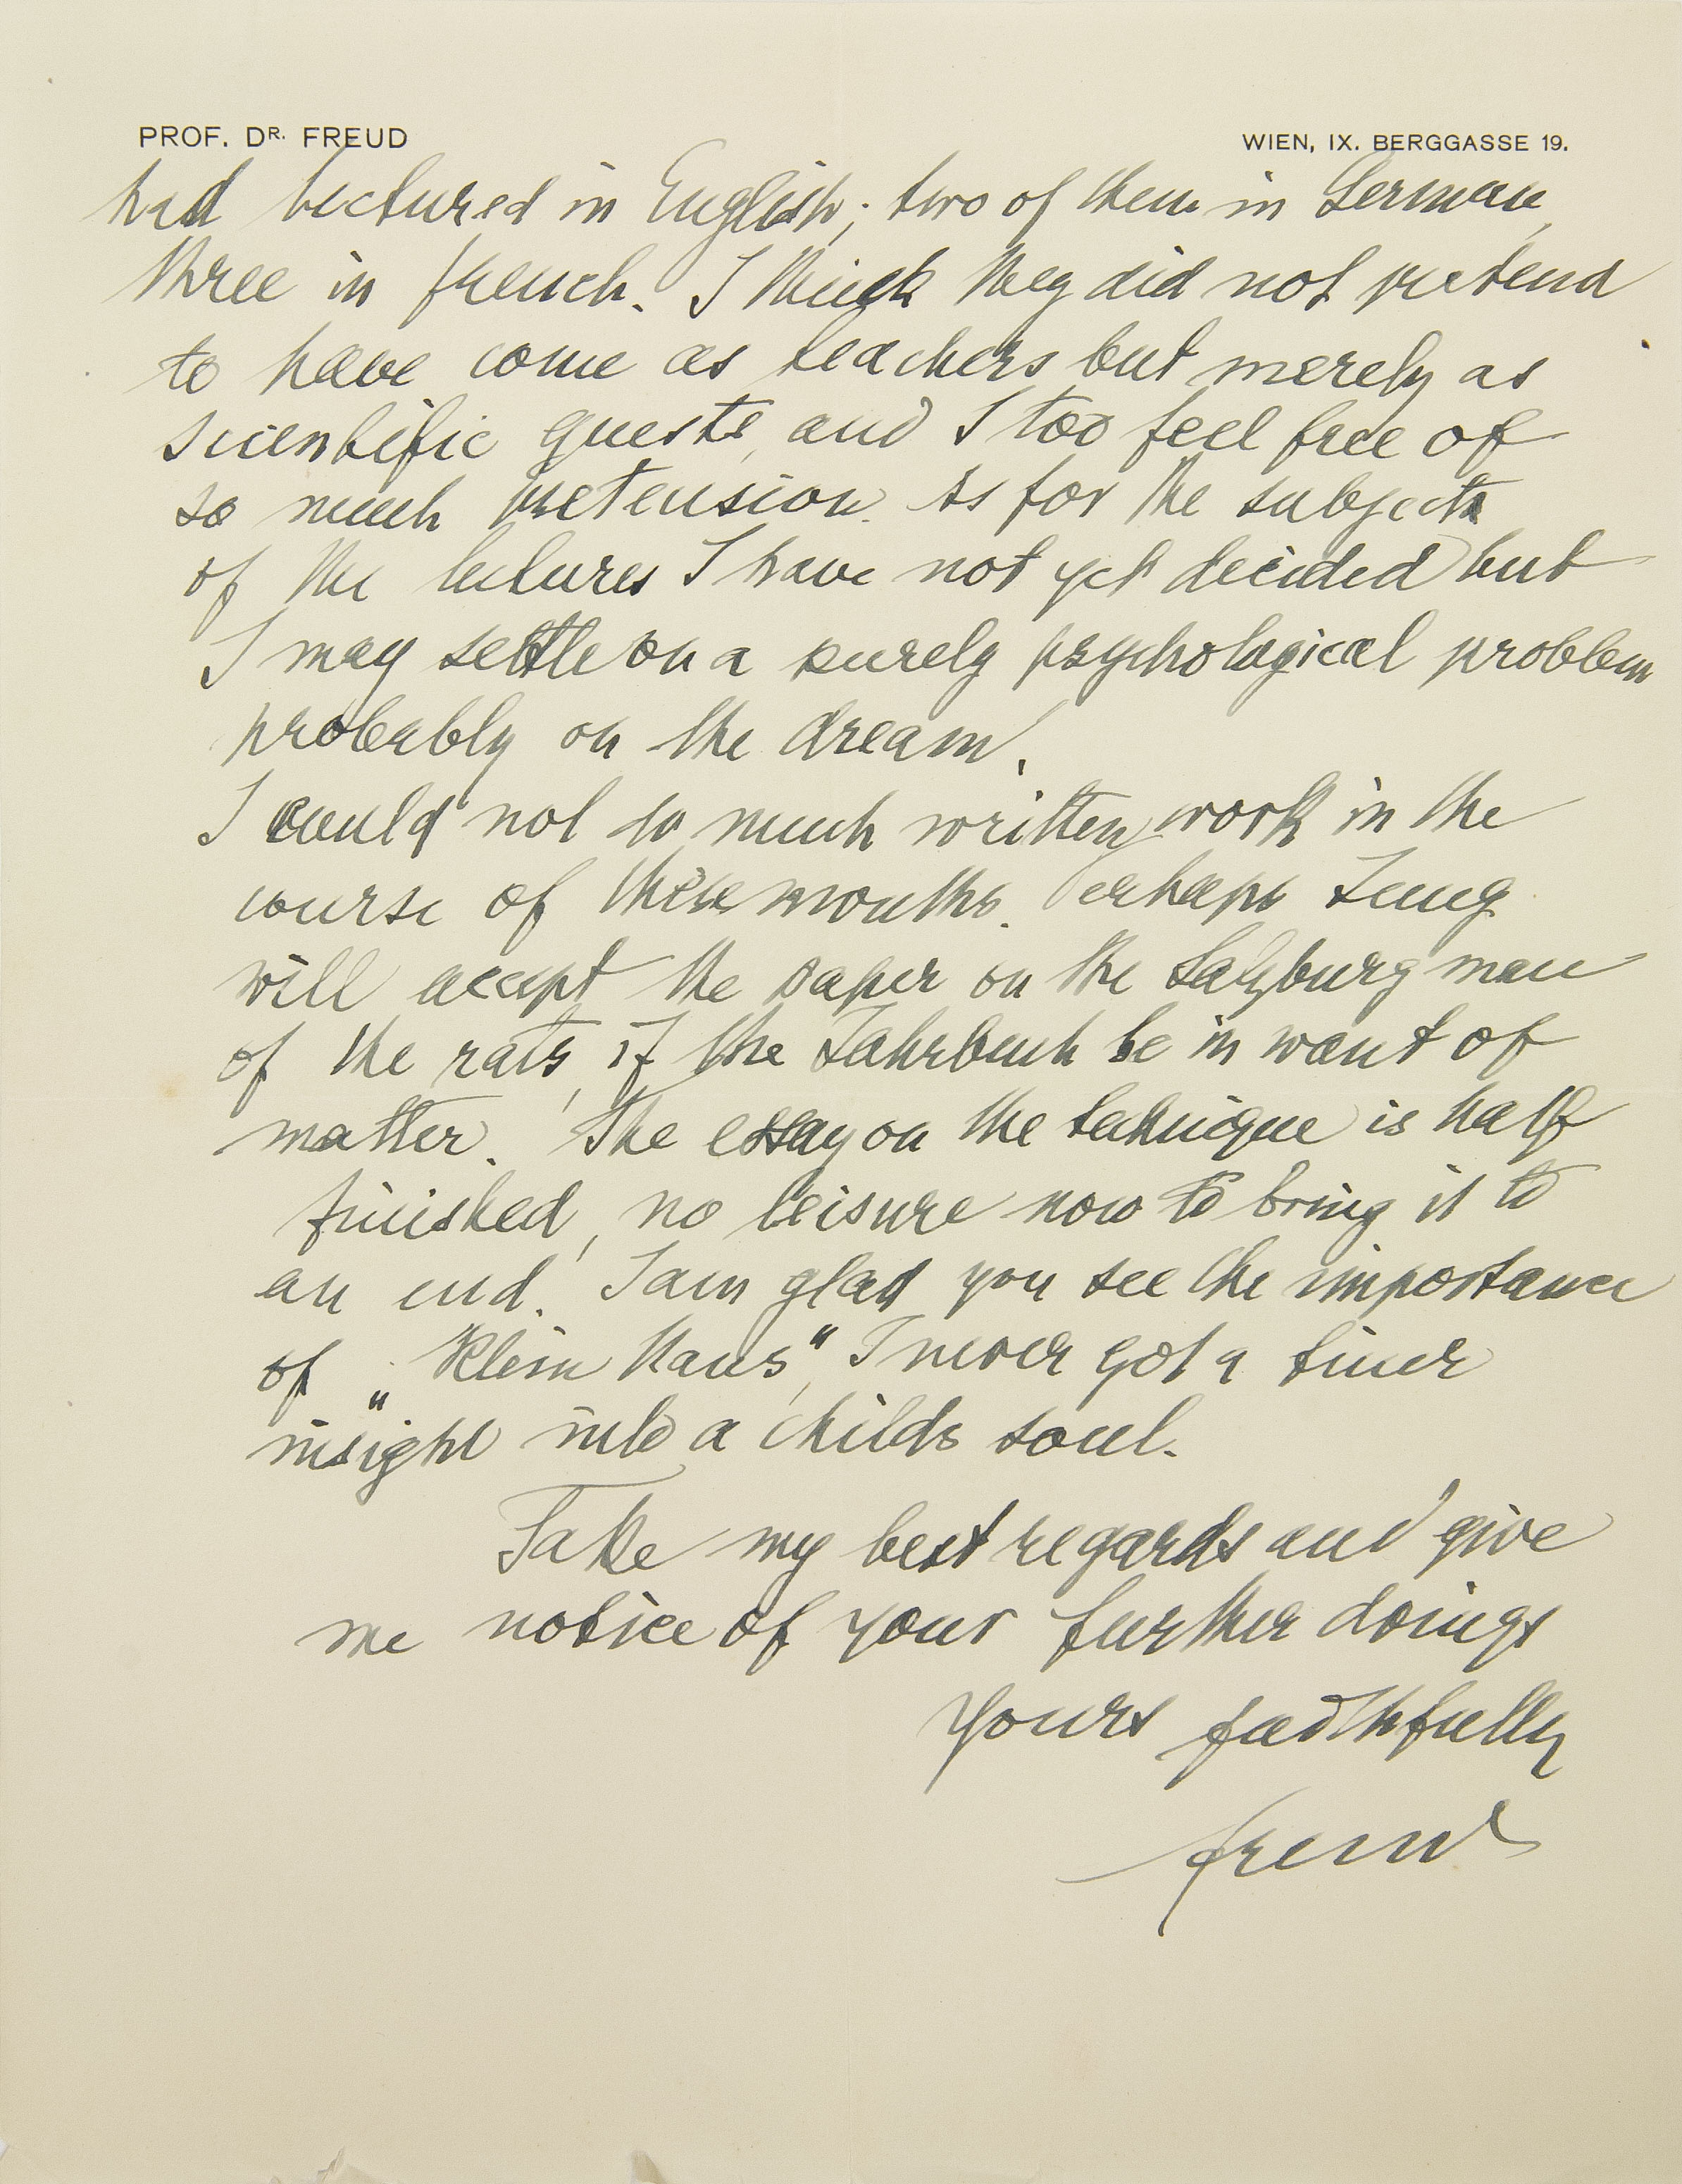 PROF. DR. FREUD WIEN, IX. BERGGASSE 19.
had lectured in English; two of them in German,
three in french. I think they did not pretend
to have come as teachers but merely as
scientific guests, and I too feel free of
so much pretension. As for the subjects
of the lectures I have not yet decided but
I may settle on a purely psychological problem
probably on the dream.
I could not do much written work in the
course of these months. Perhaps Jung
will accept the paper on the Salzburg man
of the rats, if the Jahrbuch be in want of
matter. The essay on the tehnique is half
finished, no leisure now to bring it to
an end. I am glad you see the importance
of „Klein Hans“, I never got a finer
insight into a childs soul.
Take my best regards and give
me notice of your further doings
Yours faithfully
Freud